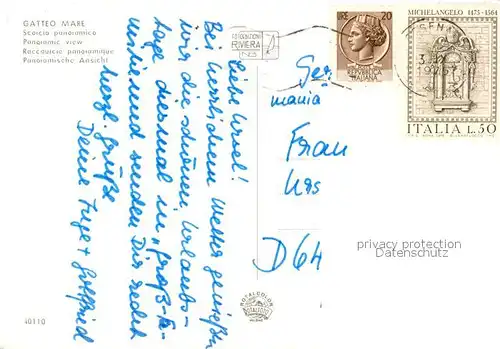 GATTEO MARE
Scorcio panoramico
Panoramic view
Raccourcis panoramique
Panoramische Ansicht
Liebe Ursel!
Bei herrlichem Wetter genießen
wir die schönen Urlaubs-
tage diesmal in "groß-Fa-
milie" und senden Dir recht
herzl. Grüße
Deine Inge + Gottfried
40110
RIVIERA
LIRE 20
REPVBBLICA
ITALIANA
MICHELANGELO 1475-1564
ITALIA L.50
Ger
mania
Frau
Urs
D 64
privacy protection
Datenschutz
ROTALCOLOR
ROTALFOTO
MILANO